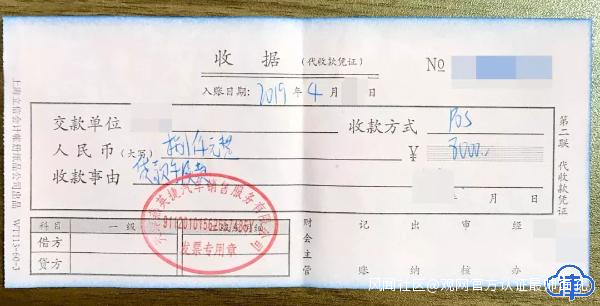 收 据 (代收款凭证) №
入账日期: 2019 年 4 月 日
交款单位 收款方式 POS
人民币(大写) 捌仟元整 ¥ 8000.—
收款事由 贷款手续费
英捷汽车销售服务有限公司
发票专用章
科目 一级
借方
贷方
财会主管
记账
出纳
审核
经办
第二联 代收款凭证
上海立信会计账册纸品公司出品 WT113-60-3
风闻社区@观网官方认证最帅街坨